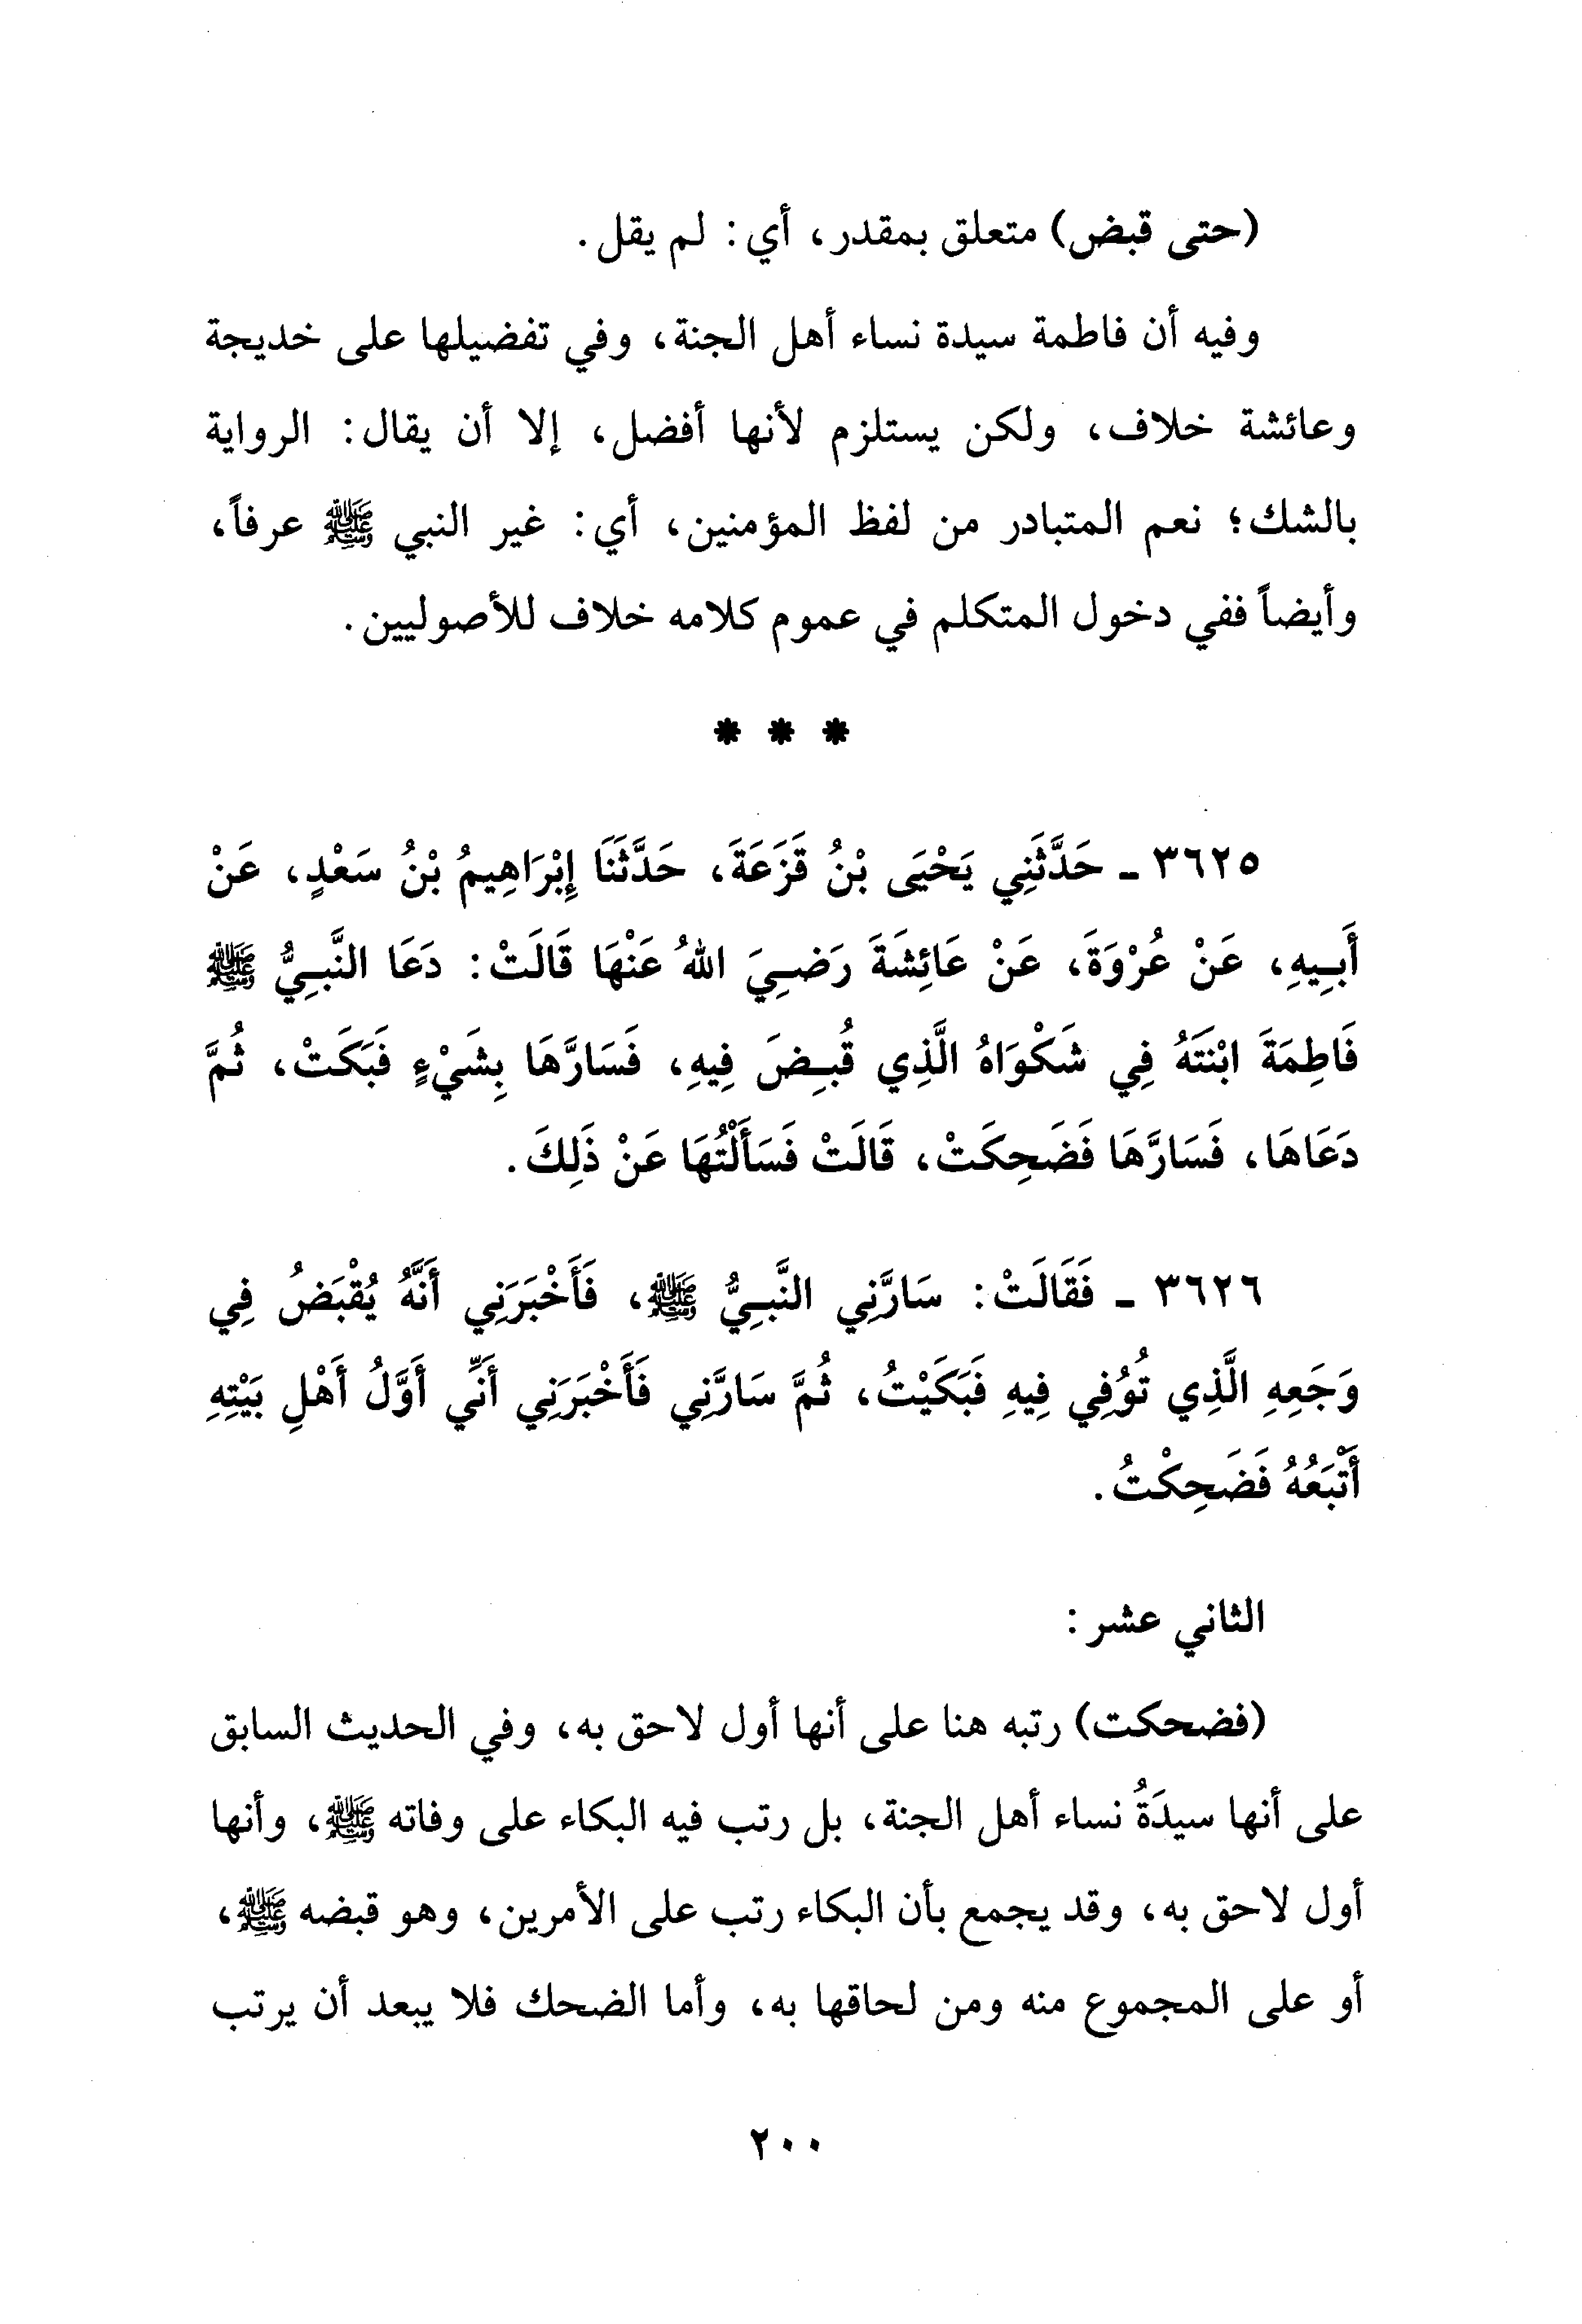 (حتى قبض) متعلق بمقدر، أي: لم يقل.
وفيه أن فاطمة سيدة نساء أهل الجنة، وفي تفضيلها على خديجة
وعائشة خلاف، ولكن يستلزم لأنها أفضل، إلا أن يقال: الرواية
بالشك؛ نعم المتبادر من لفظ المؤمنين، أي: غير النبي ﷺ عرفاً،
وأيضاً ففي دخول المتكلم في عموم كلامه خلاف للأصوليين.
* * *
٣٦٢٥ - حَدَّثَنِي يَحْيَى بْنُ قَزَعَةَ، حَدَّثَنَا إِبْرَاهِيمُ بْنُ سَعْدٍ، عَنْ
أَبِيهِ، عَنْ عُرْوَةَ، عَنْ عَائِشَةَ رَضِيَ اللهُ عَنْهَا قَالَتْ: دَعَا النَّبِيُّ ﷺ
فَاطِمَةَ ابْنَتَهُ فِي شَكْوَاهُ الَّذِي قُبِضَ فِيهِ، فَسَارَّهَا بِشَيْءٍ فَبَكَتْ، ثُمَّ
دَعَاهَا، فَسَارَّهَا فَضَحِكَتْ، قَالَتْ فَسَأَلْتُهَا عَنْ ذَلِكَ.
٣٦٢٦ - فَقَالَتْ: سَارَّنِي النَّبِيُّ ﷺ، فَأَخْبَرَنِي أَنَّهُ يُقْبَضُ فِي
وَجَعِهِ الَّذِي تُوُفِي فِيهِ فَبَكَيْتُ، ثُمَّ سَارَّنِي فَأَخْبَرَنِي أَنِّي أَوَّلُ أَهْلِ بَيْتِهِ
أَتْبَعُهُ فَضَحِكْتُ.
الثاني عشر:
(فضحكت) رتبه هنا على أنها أول لاحق به، وفي الحديث السابق
على أنها سيدَةُ نساء أهل الجنة، بل رتب فيه البكاء على وفاته ﷺ، وأنها
أول لاحق به، وقد يجمع بأن البكاء رتب على الأمرين، وهو قبضه ﷺ،
أو على المجموع منه ومن لحاقها به، وأما الضحك فلا يبعد أن يرتب
٢٠٠